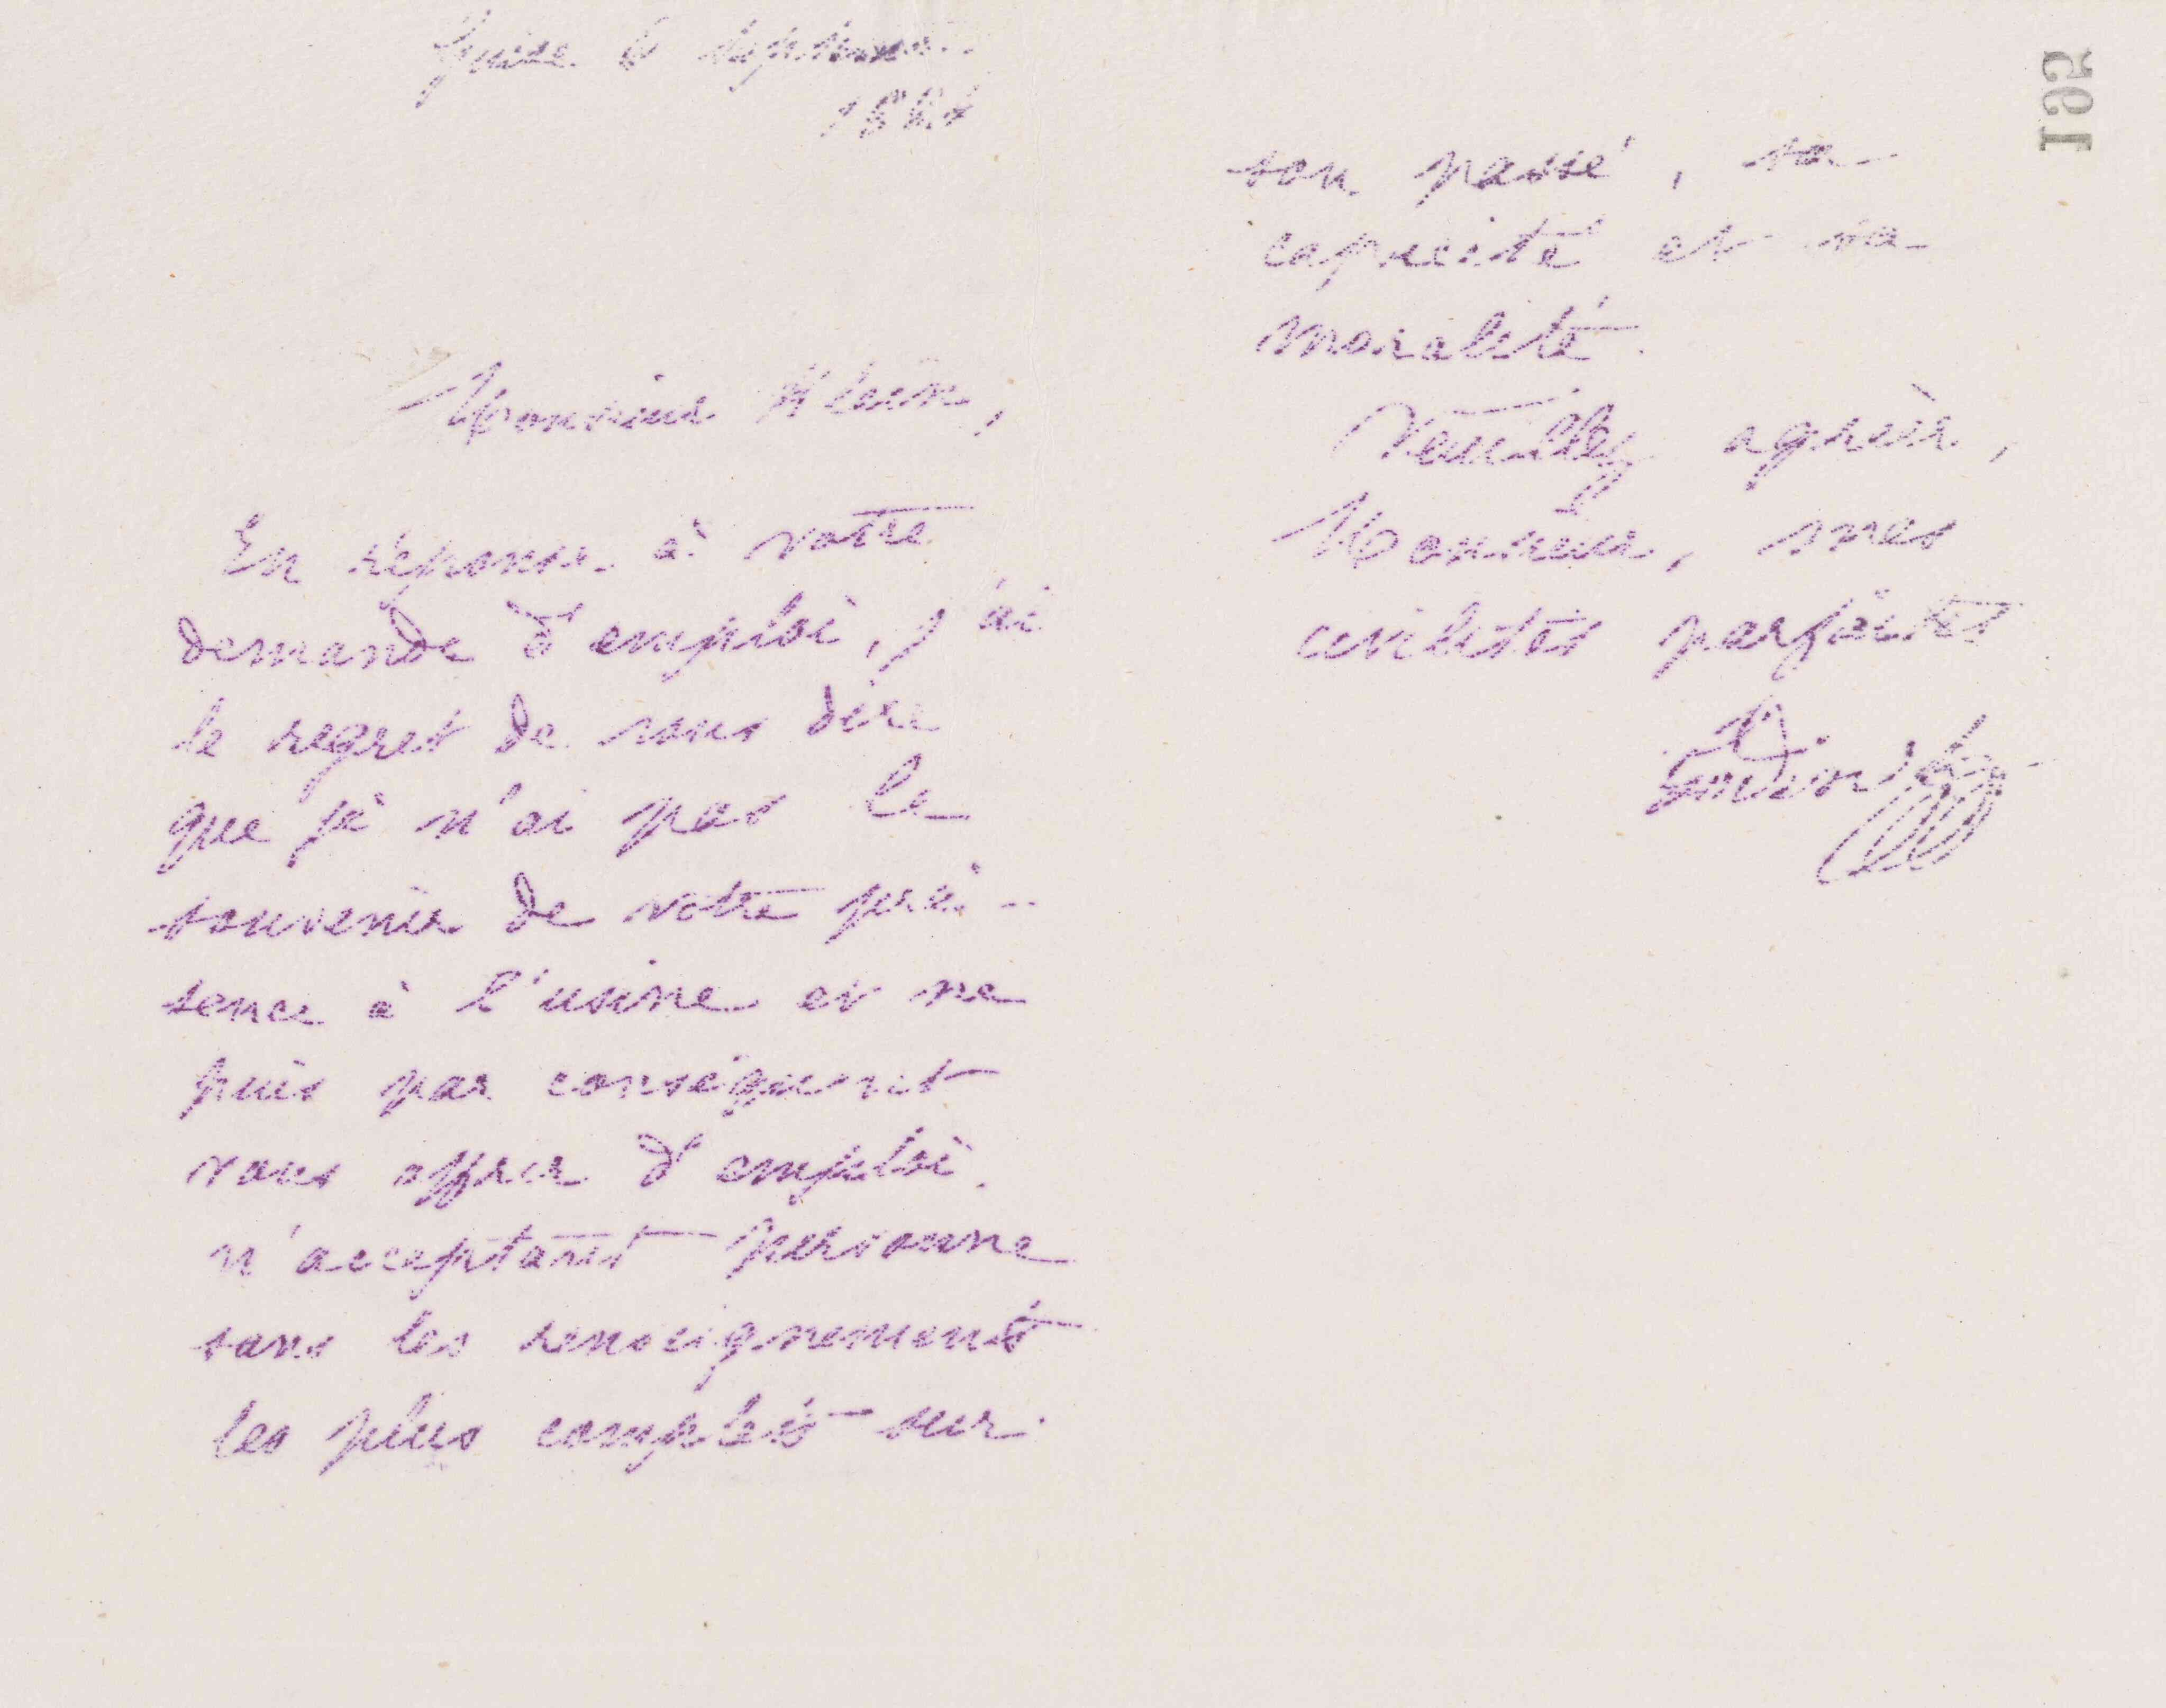 Guise 6 septembre
Monsieur Klein,
En réponse à votre
demande d'emploi, j'ai
le regret de vous dire
que je n'ai pas le
souvenir de votre pré-
sence à l'usine et ne
puis par conséquent
vous offrir d'emploi.
n'acceptant personne
sans les renseignements
les plus complets sur
son passé, sa
capacité et sa
moralité.
Veuillez agréer,
Monsieur, mes
civilités parfaites
Godin
195